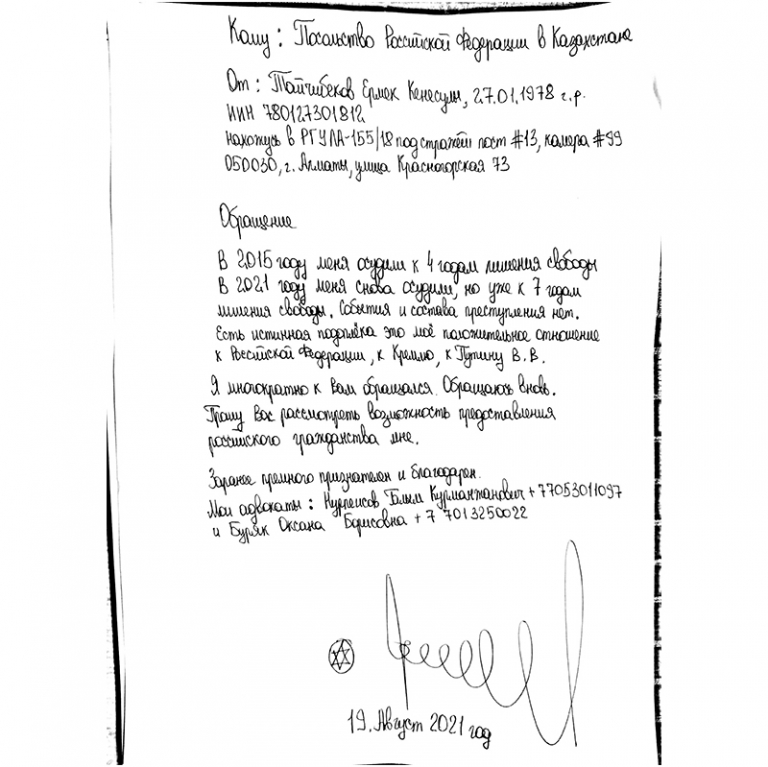 Кому: Посольство Российской Федерации в Казахстане
От: Тайчибеков Ермек Кенесулы, 27.01.1978 г.р.
ИИН 780127301812
нахожусь в РГУ ЛА-155/18 под стражей пост #13, камера #99
050030, г. Алматы, улица Красногорская 73
Обращение
В 2015 году меня осудили к 4 годам лишения свободы
В 2021 году меня снова осудили, но уже к 7 годам
лишения свободы. События и состава преступления нет.
Есть истинная подоплёка это моё положительное отношение
к Российской Федерации, к Кремлю, к Путину В.В.
Я многократно к Вам обращался. Обращаюсь вновь.
Прошу Вас рассмотреть возможность предоставления
российского гражданства мне.
Заранее премного признателен и благодарен.
Мои адвокаты: Нурпеисов Ғалым Курмантаевич +77053011097
и Буряк Оксана Борисовна +7 7013250022
19. Август 2021 год